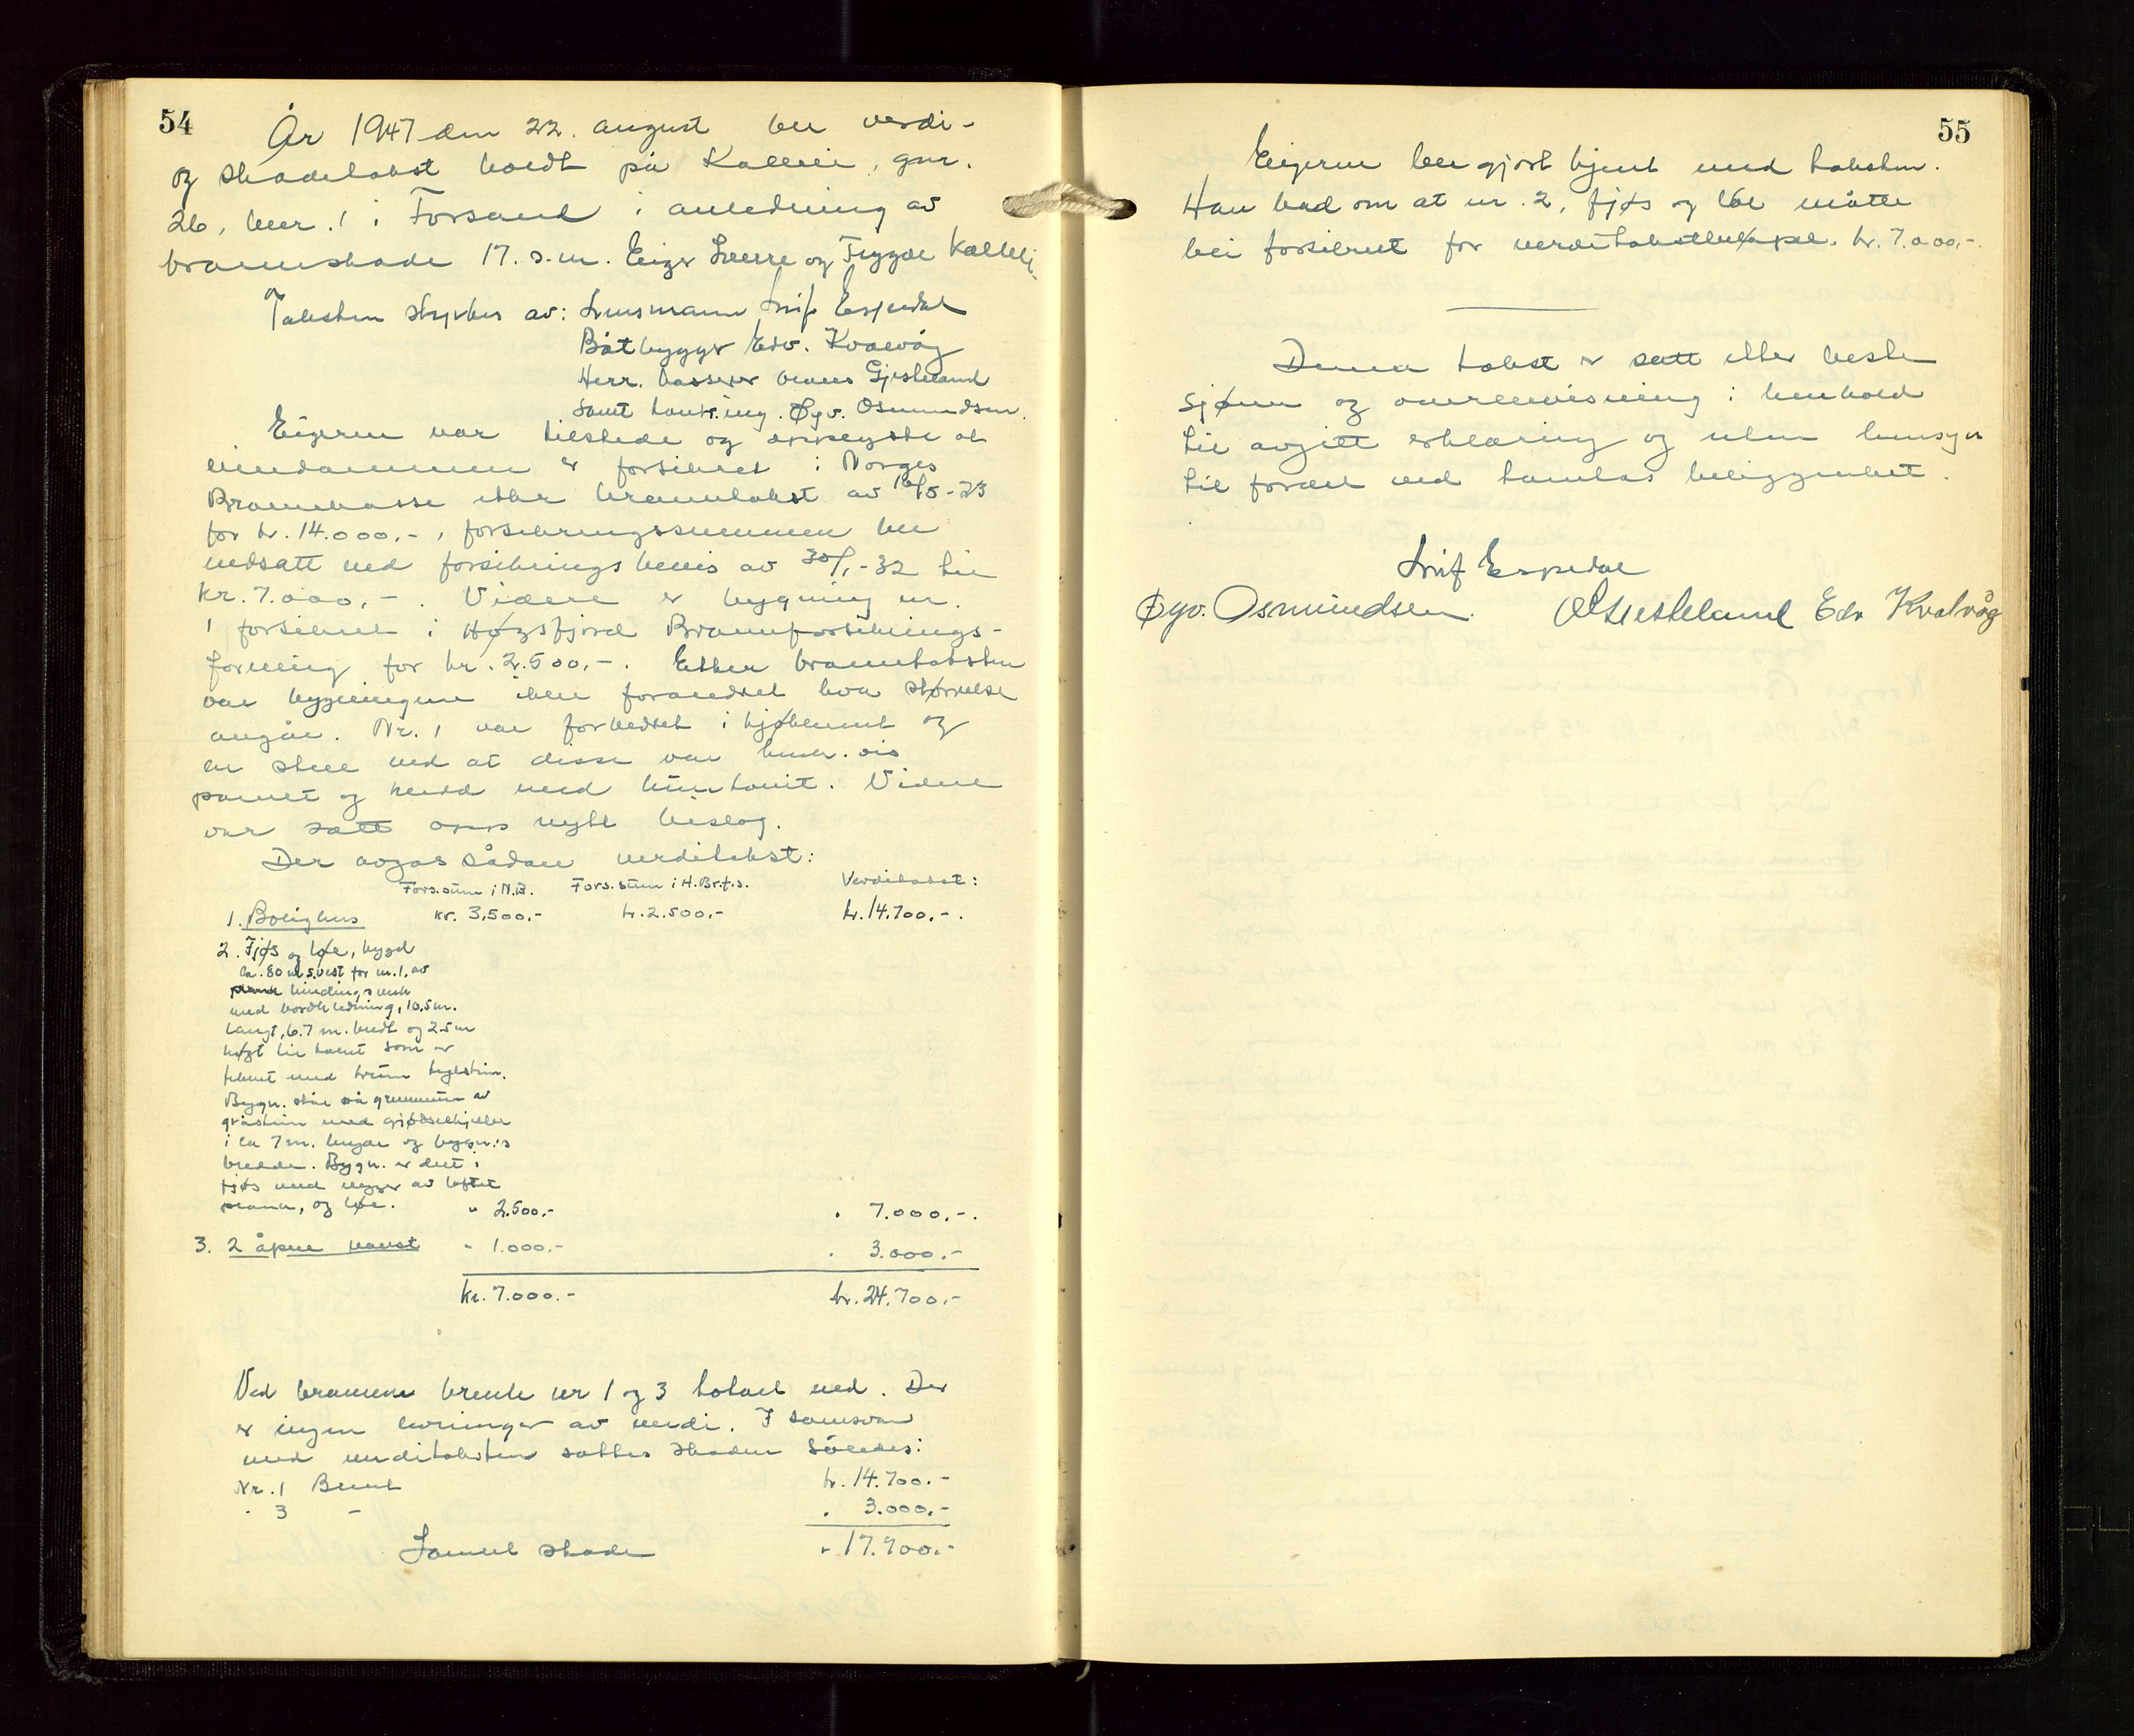 54
År 1947 den 22. august ble verdi-
og skadetakst holdt på Kalleli, gnr.
26, bnr. 1 i Forsand i anledning av
brannskade 17. s.m. Eiger Sverre og Trygve Kalleli
Taksten styrkes av: Lensmann Leif Espedal
Båtbygger Edv. Kvalvåg
Herr. kasserer Gjesteland
samt kontr.ing. Øyv. Osmundsen.
Eigeren var tilstede og opplyste at
eiendommen er forsikret i Norges
Brannkasse etter branntakst av 16/5-23
for kr. 14.000,-, forsikringssummen ble
nedsatt ved forsikringsbevis av 30/1-32 til
kr. 7.000,-. Videre er bygning nr.
1 forsikret i Høgsfjord Brannforsikrings-
forening for kr. 2.500,-. Etter branntaksten
var bygningene ikke forandret hva størrelse
angår. Nr. 1 var forbedret i kjøkkenet og
en stue ved at disse var henh.vis
panelt og kledd med huntonit. Videre
var satt opp nytt bislag.
Der avgas sådan verditakst:
Fors.sum i N.B. Fors.sum i H.Br.f.s. Verditakst:
1. Bolighus kr. 3.500,- kr. 2.500,- kr. 14.700,-.
2. Fjøs og løe, bygd
ca. 80 m s.vest for nr. 1, av
bindingsverk
med bordkledning, 10,5 m.
langt, 6.7 m. bredt og 2.5 m
høgt til taket som er
tekket med krum teglstein.
Bygn. står på grunnmur av
gråstein med gjødselkjeller
i ca 7 m. lengde og bygn.s
bredde. Bygn. er delt i
fjøs med vegger av loftet
plank, og løe. " 2.500.- " 7.000,-.
3. 2 åpne naust " 1.000.- " 3.000.-
kr. 7.000.- kr. 24.700,-
Ved brannen brente nr 1 og 3 totalt ned. Der
er ingen levninger av verdi. I samsvar
med verditaksten settes skaden således:
Nr. 1 Brent kr. 14.700.-
" 3 - " 3.000.-
Samlet skade " 17.700.-
55
Eigeren ble gjort kjent med taksten.
Han bad om at nr. 2, fjøs og løe måtte
bli forsikret for verditakstbeløpet kr. 7.000,-.
Denne takst er satt etter beste
skjønn og overbevisning i henhold
til avgitt erklæring og uten hensyn
til fordel ved tomtas beliggenhet.
Leif Espedal
Øyv. Osmundsen. Gjesteland Edv Kvalvåg